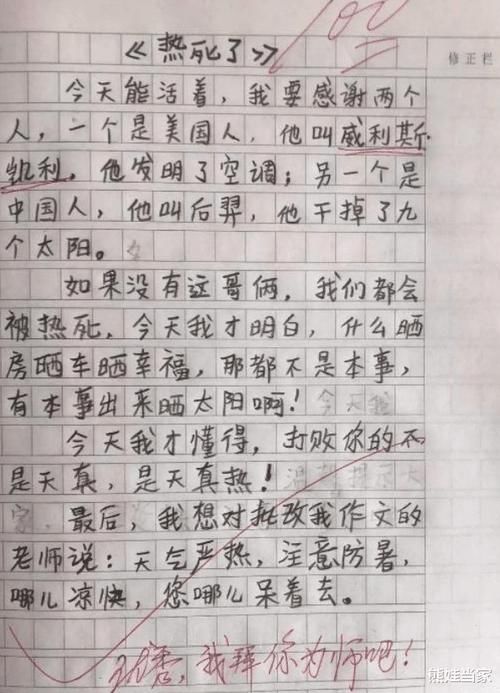 100
《热死了》
修正栏
今天能活着，我要感谢两个
人，一个是美国人，他叫威利斯
凯利，他发明了空调；另一个是
中国人，他叫后羿，他干掉了九
个太阳。
如果没有这哥俩，我们都会
被热死，今天我才明白，什么晒
房晒车晒幸福，那都不是本事，
有本事出来晒太阳啊！今天我
今天我才懂得，打败你的不
是天真，是天真热！温馨提示大
家，最后，我想对批改我作文的
老师说：天气严热，注意防暑，
哪儿凉快，您哪儿呆着去。
优秀，我拜你为师吧！
熊娃当家